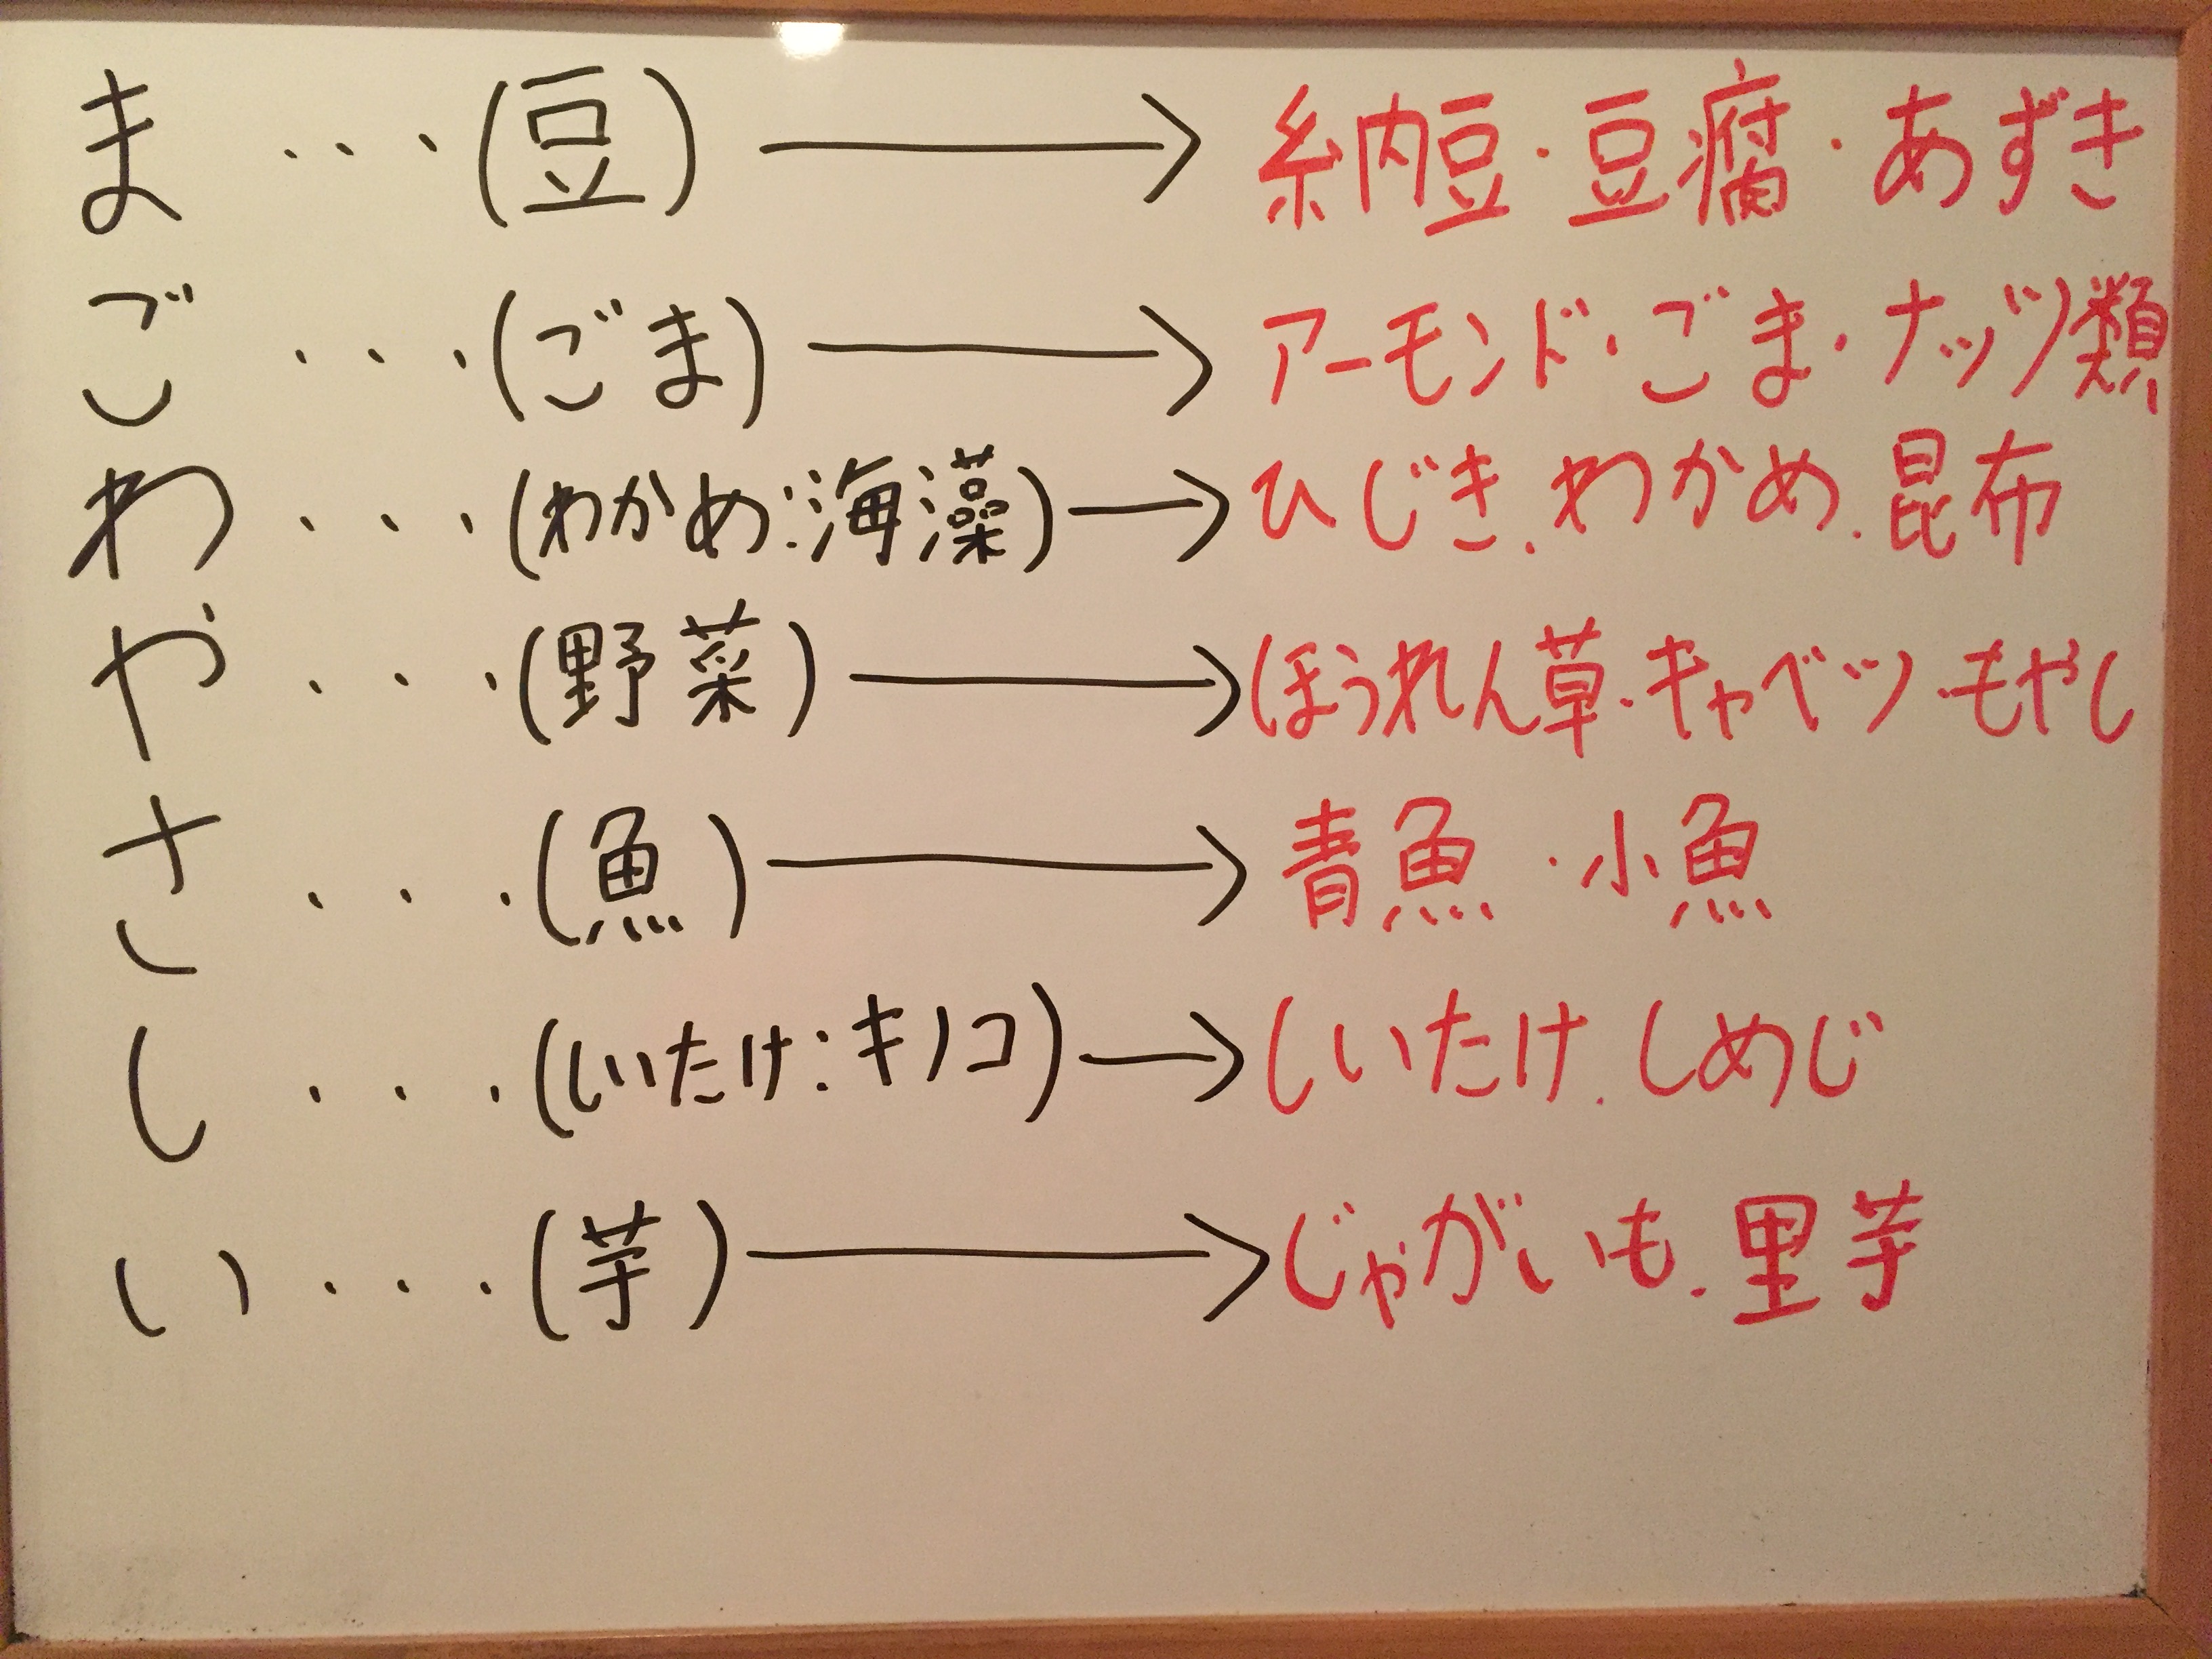 ま ・・・(豆) → 納豆・豆腐・あずき
ご ・・・(ごま) → アーモンド・ごま・ナッツ類
わ ・・・(わかめ:海藻) → ひじき.わかめ.昆布
や ・・・(野菜) → ほうれん草・キャベツ・もやし
さ ・・・(魚) → 青魚・小魚
し ・・・(しいたけ:キノコ) → しいたけ.しめじ
い ・・・(芋) → じゃがいも.里芋